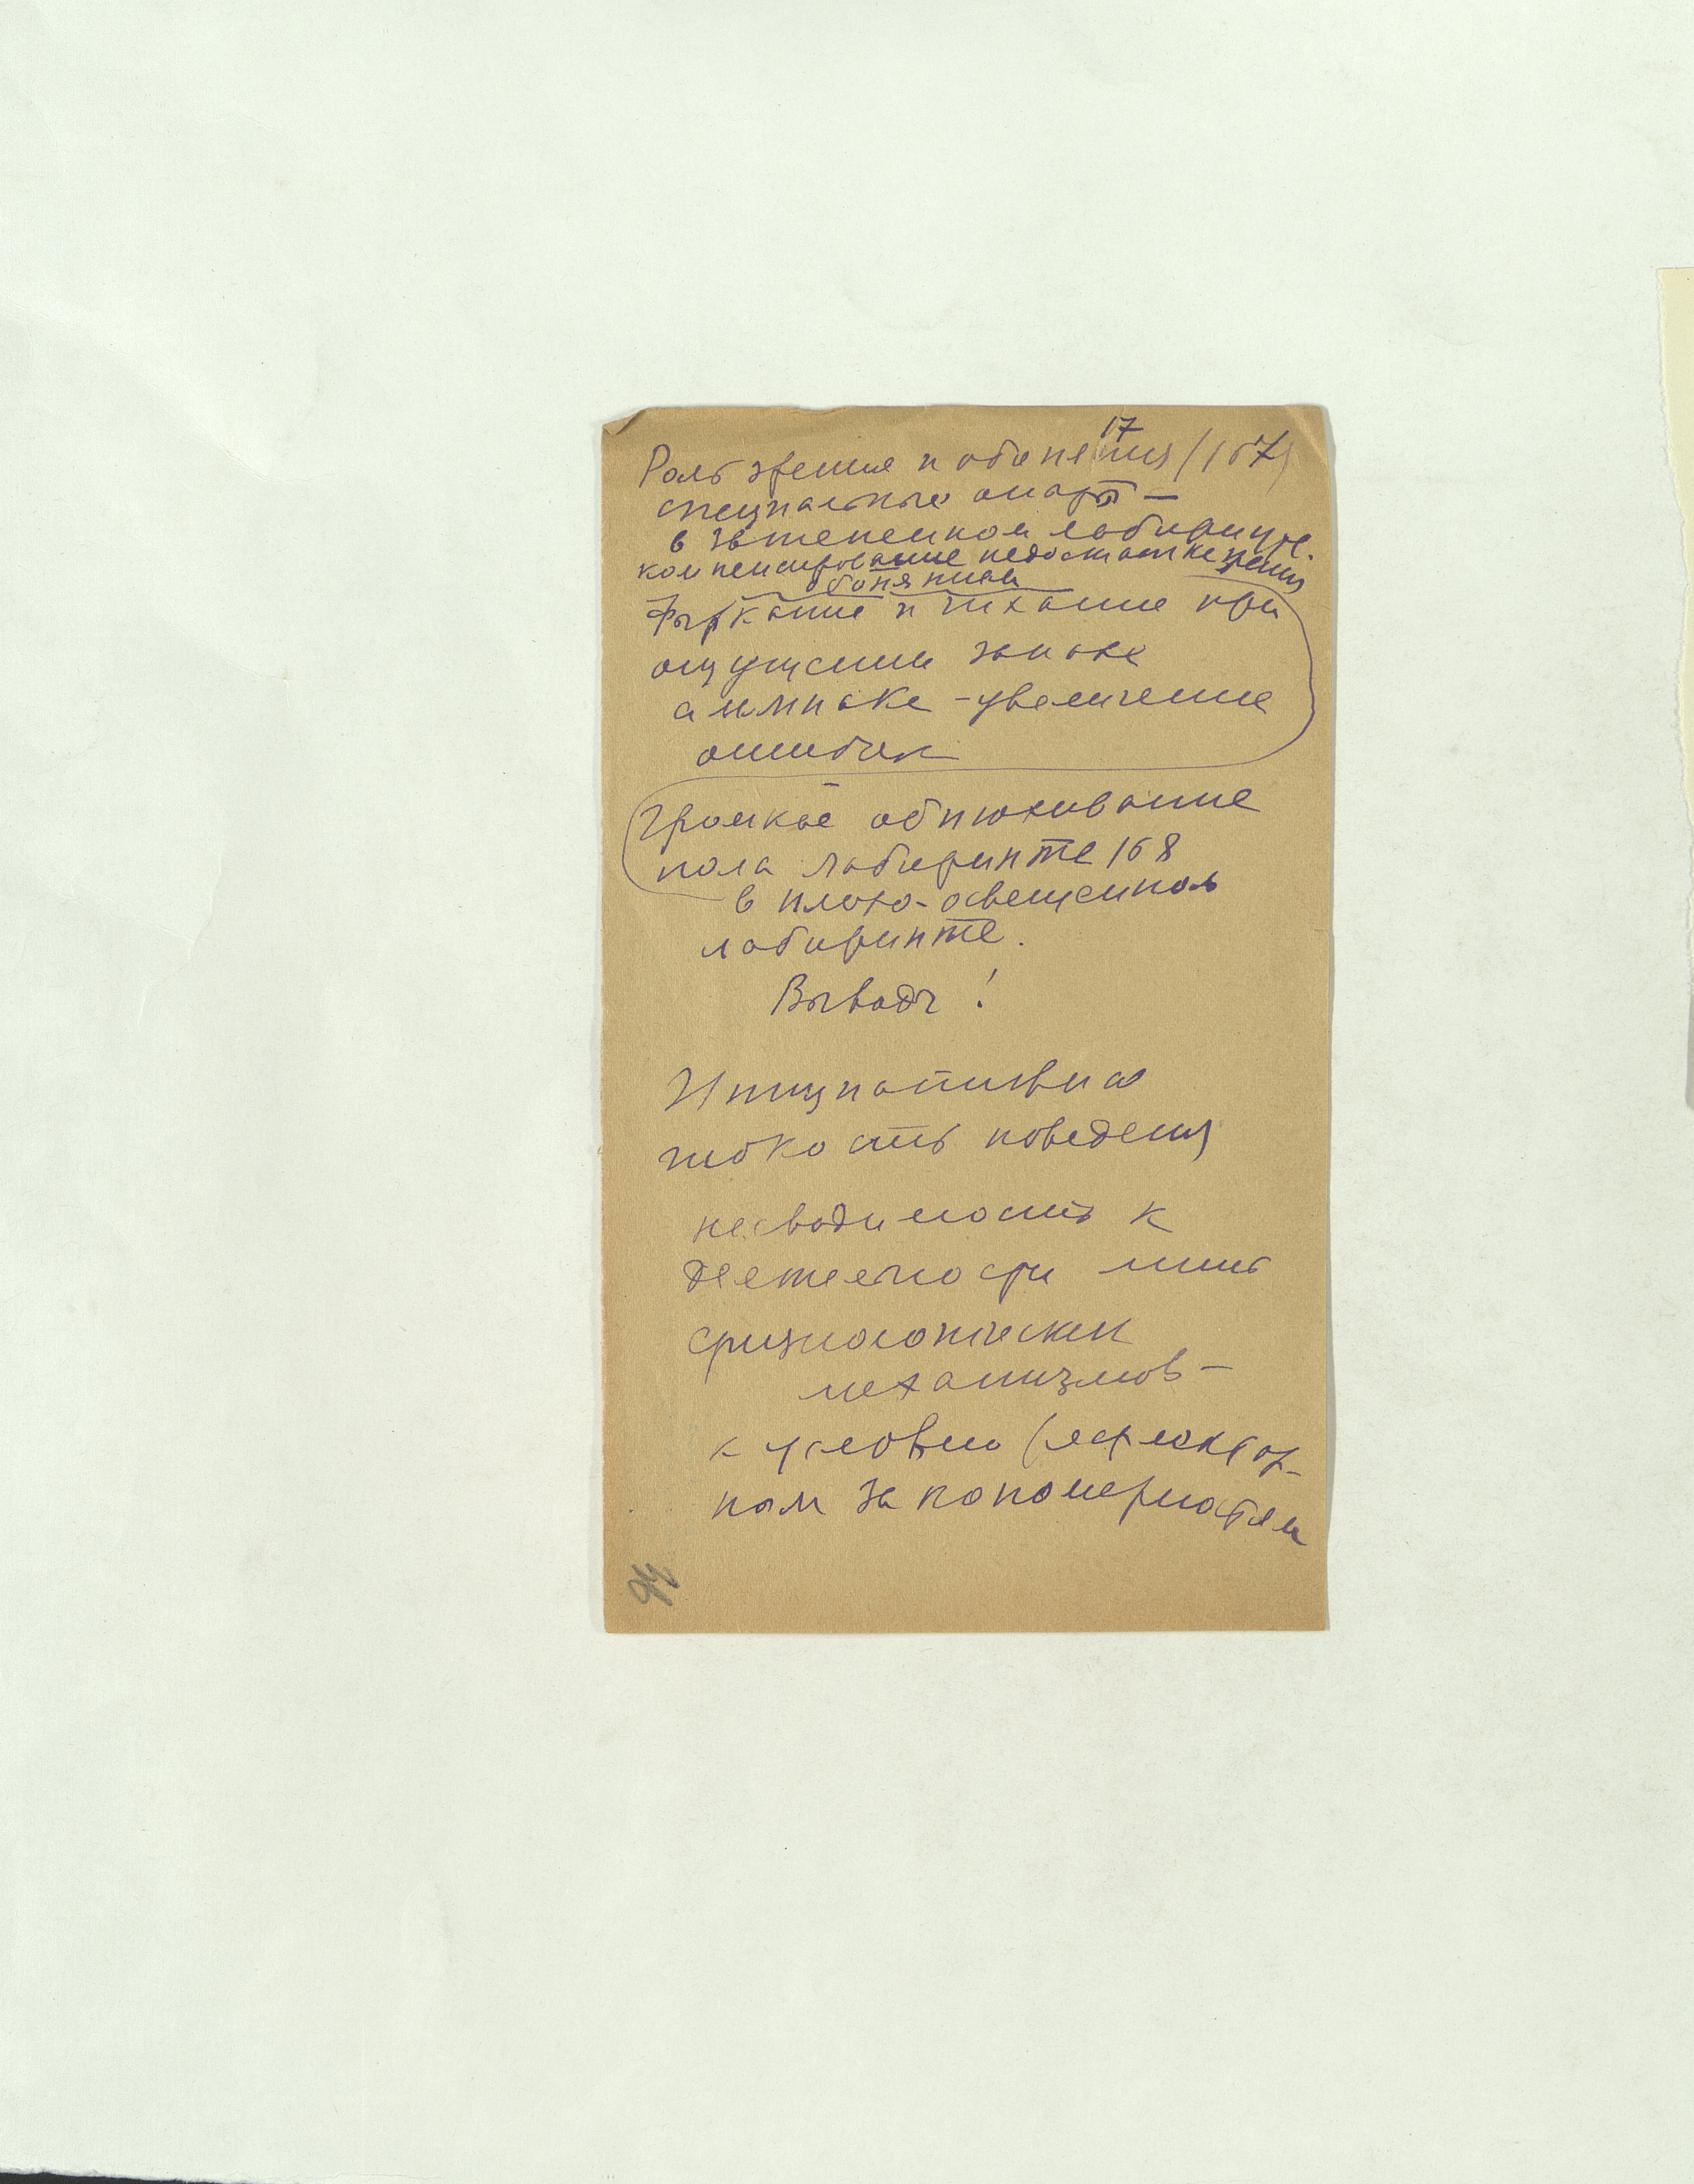 17
Роль зрения и обоняния (167)
специальные опыты —
в затененном лабиринте.
компенсирование недостатка зрения
обонянием
Фырканье и чихание при
ощущении запаха
аммиака - увеличение
ошибок
Громкое обнюхивание
пола лабиринта 168
в плохо-освещенном
лабиринте.
Выводы!
Инициативная
гибкость поведения
несводимость к
деятельности лишь
физиологических
механизмов —
к условно рефлектор-
ным закономерностям